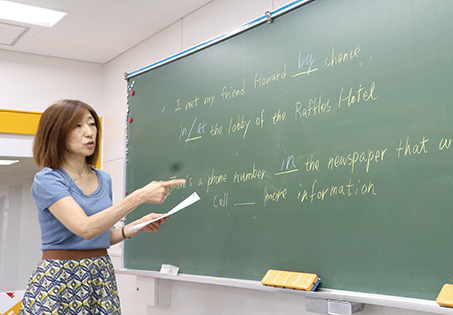 I met my friend Howard by chance
in/at the lobby of the Raffles Hotel
There's a phone number in the newspaper that
Call ___ more information